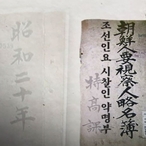 朝鮮人要視察人略名簿
조선인요 시찰인 약명부
特高課
昭和二十年